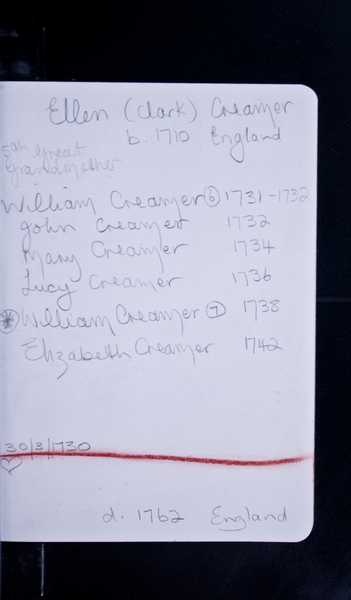 Ellen (Clark) Creamer
b. 1710 England
5th Great
Grandmother
William Creamer ⑥ 1731-1732
John Creamer 1732
Mary Creamer 1734
Lucy Creamer 1736
William Creamer ⑦ 1738
Elizabeth Creamer 1742
30/3/1730
d. 1762 England